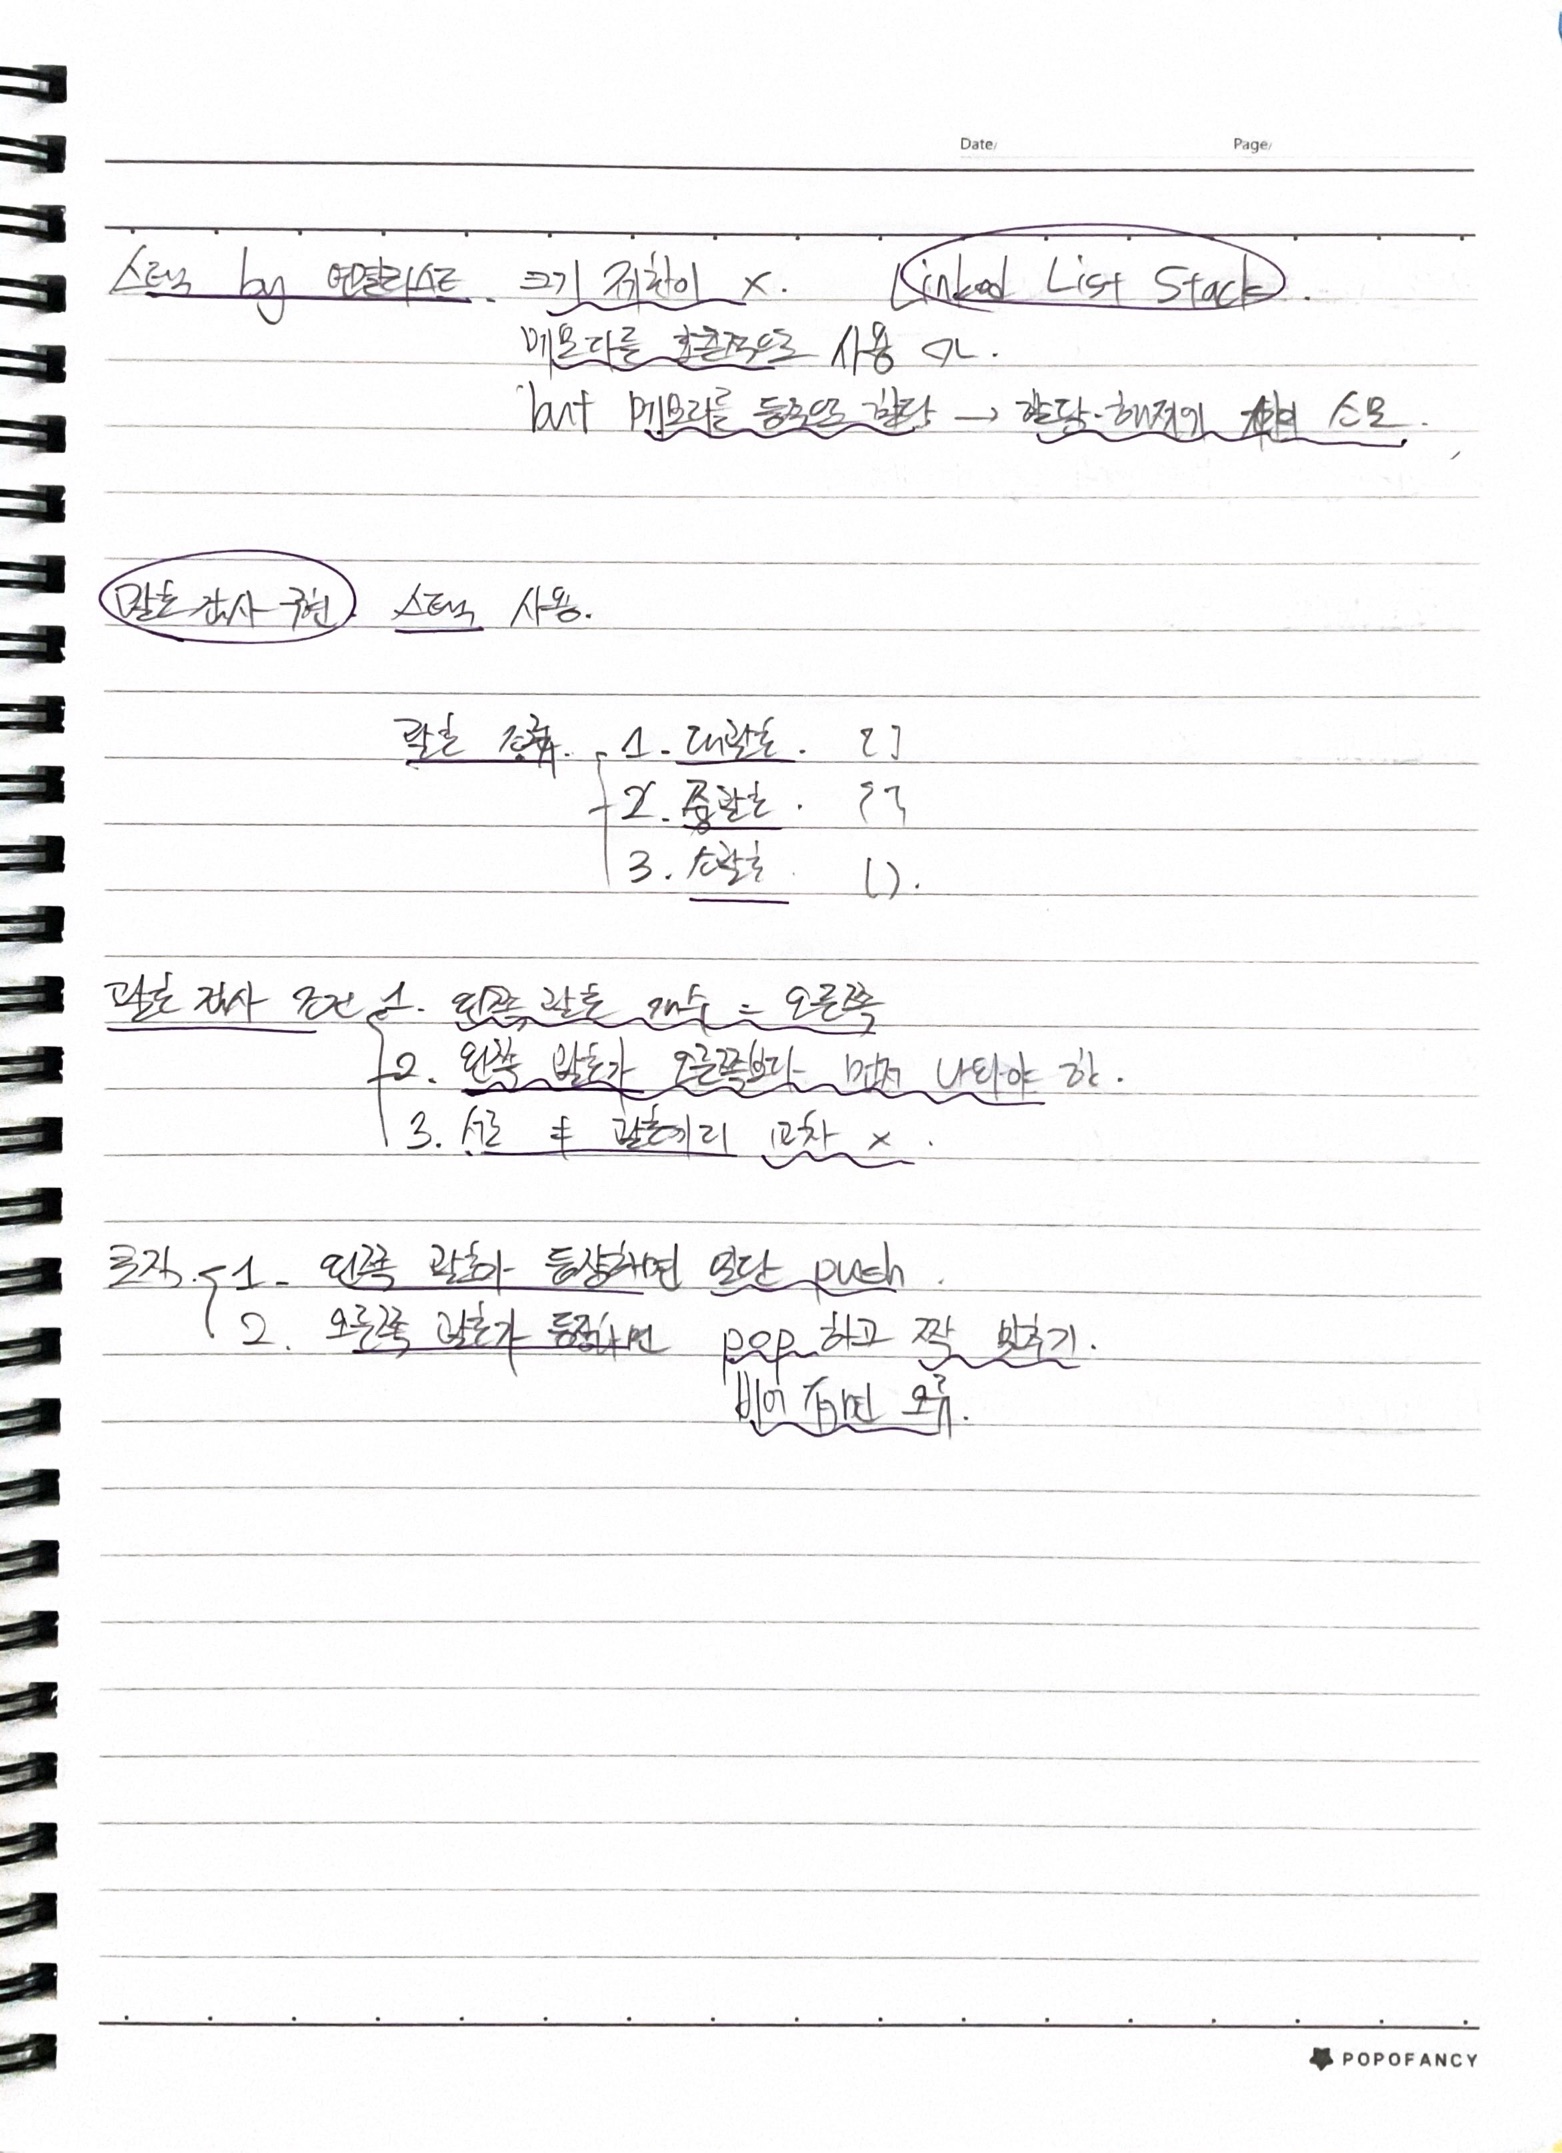 Date/ Page/
스택 by 연결리스트. 크기 제한이 x. Linked List Stack.
메모리를 효율적으로 사용
but 메모리를 동적으로 할당 → 할당·해제가 소모.
괄호 검사 구현 스택 사용.
괄호 종류. 1. 대괄호. [ ]
2. 중괄호. { }
3. 소괄호. ( ).
괄호 검사 조건 1. 왼쪽 괄호 개수 = 오른쪽
2. 왼쪽 괄호가 오른쪽보다 먼저 나와야 함.
3. 서로 ≠ 괄호끼리 교차 x.
로직. 1. 왼쪽 괄호가 등장하면 일단 push.
2. 오른쪽 괄호가 등장하면 pop 하고 짝 맞추기.
비어 있으면 오류.
POPOFANCY